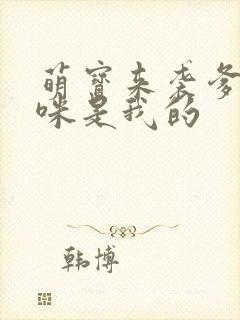 萌宝来袭爹
咪是我的
韩博